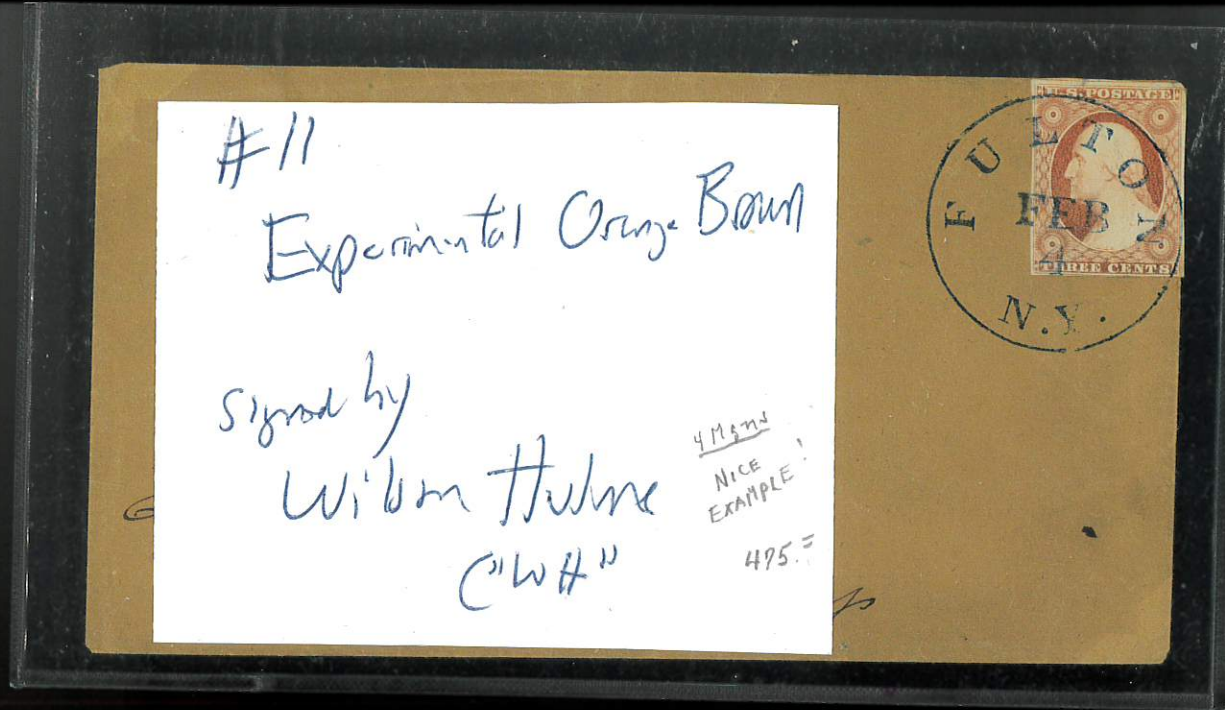 #11
Experimental Orange Brown
signed by
Wilson Hulme
("WH"
4 Mgns
NICE
EXAMPLE!
475.=
U.S. POSTAGE
THREE CENTS
FULTON
FEB
4
N.Y.